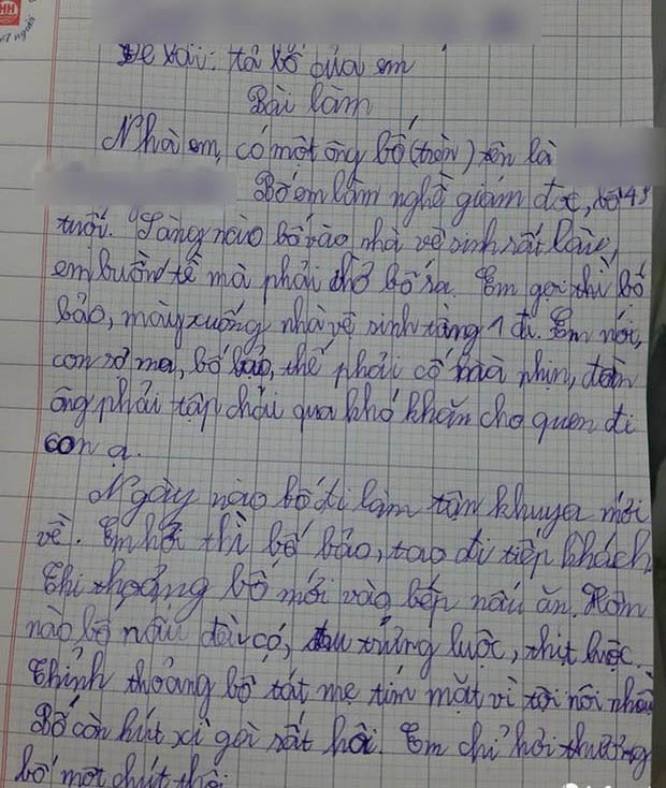 Đề bài: tả bố của em
Bài làm
Nhà em, có một ông bố (trần) tên là
Bố em làm nghề giám đốc, bố 43
tuổi. Sáng nào bố vào nhà vệ sinh rất lâu,
em buồn tè mà phải chờ bố ra. Em gọi thì bố
bảo, mày xuống nhà vệ sinh tầng 1 đi. Em nói,
con sợ ma, bố bảo, thế phải cố mà nhịn, đàn
ông phải tập trải qua khó khăn cho quen đi
con ạ.
Ngày nào bố đi làm tận khuya mới
về. Em hỏi thì bố bảo, tao đi tiếp khách
Thi thoảng bố mới vào bếp nấu ăn. Hôm
nào bố nấu đều có, trứng luộc, thịt luộc.
Thỉnh thoảng bố tát mẹ tím mặt vì tội nói nhiều
Bố còn hút xì gà rất hôi. Em chỉ hơi thương
bố một chút thôi